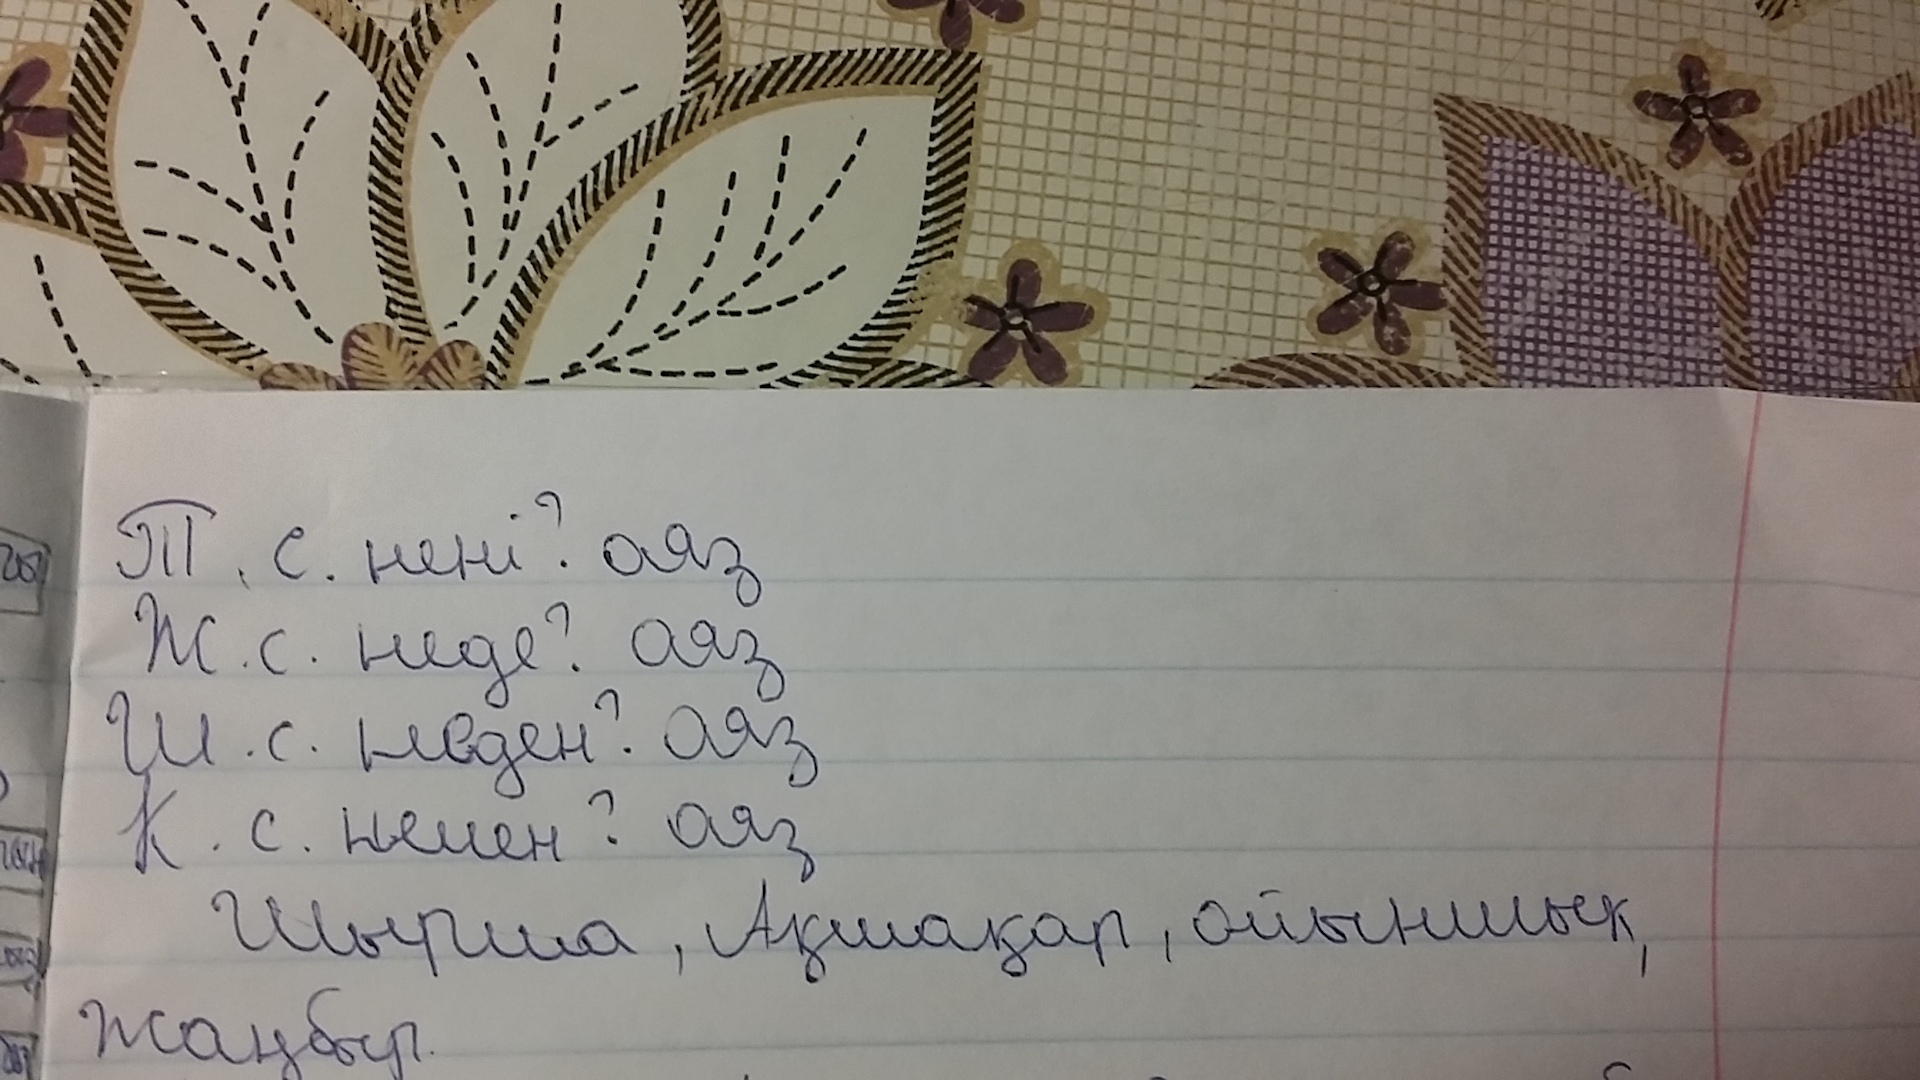 Т. с. нені? аяз
Ж.с. неде? аяз
Ш.с. неден? аяз
К.с. немен? аяз
Шырша, Ақшақар, ойыншық,
жаңбыр.